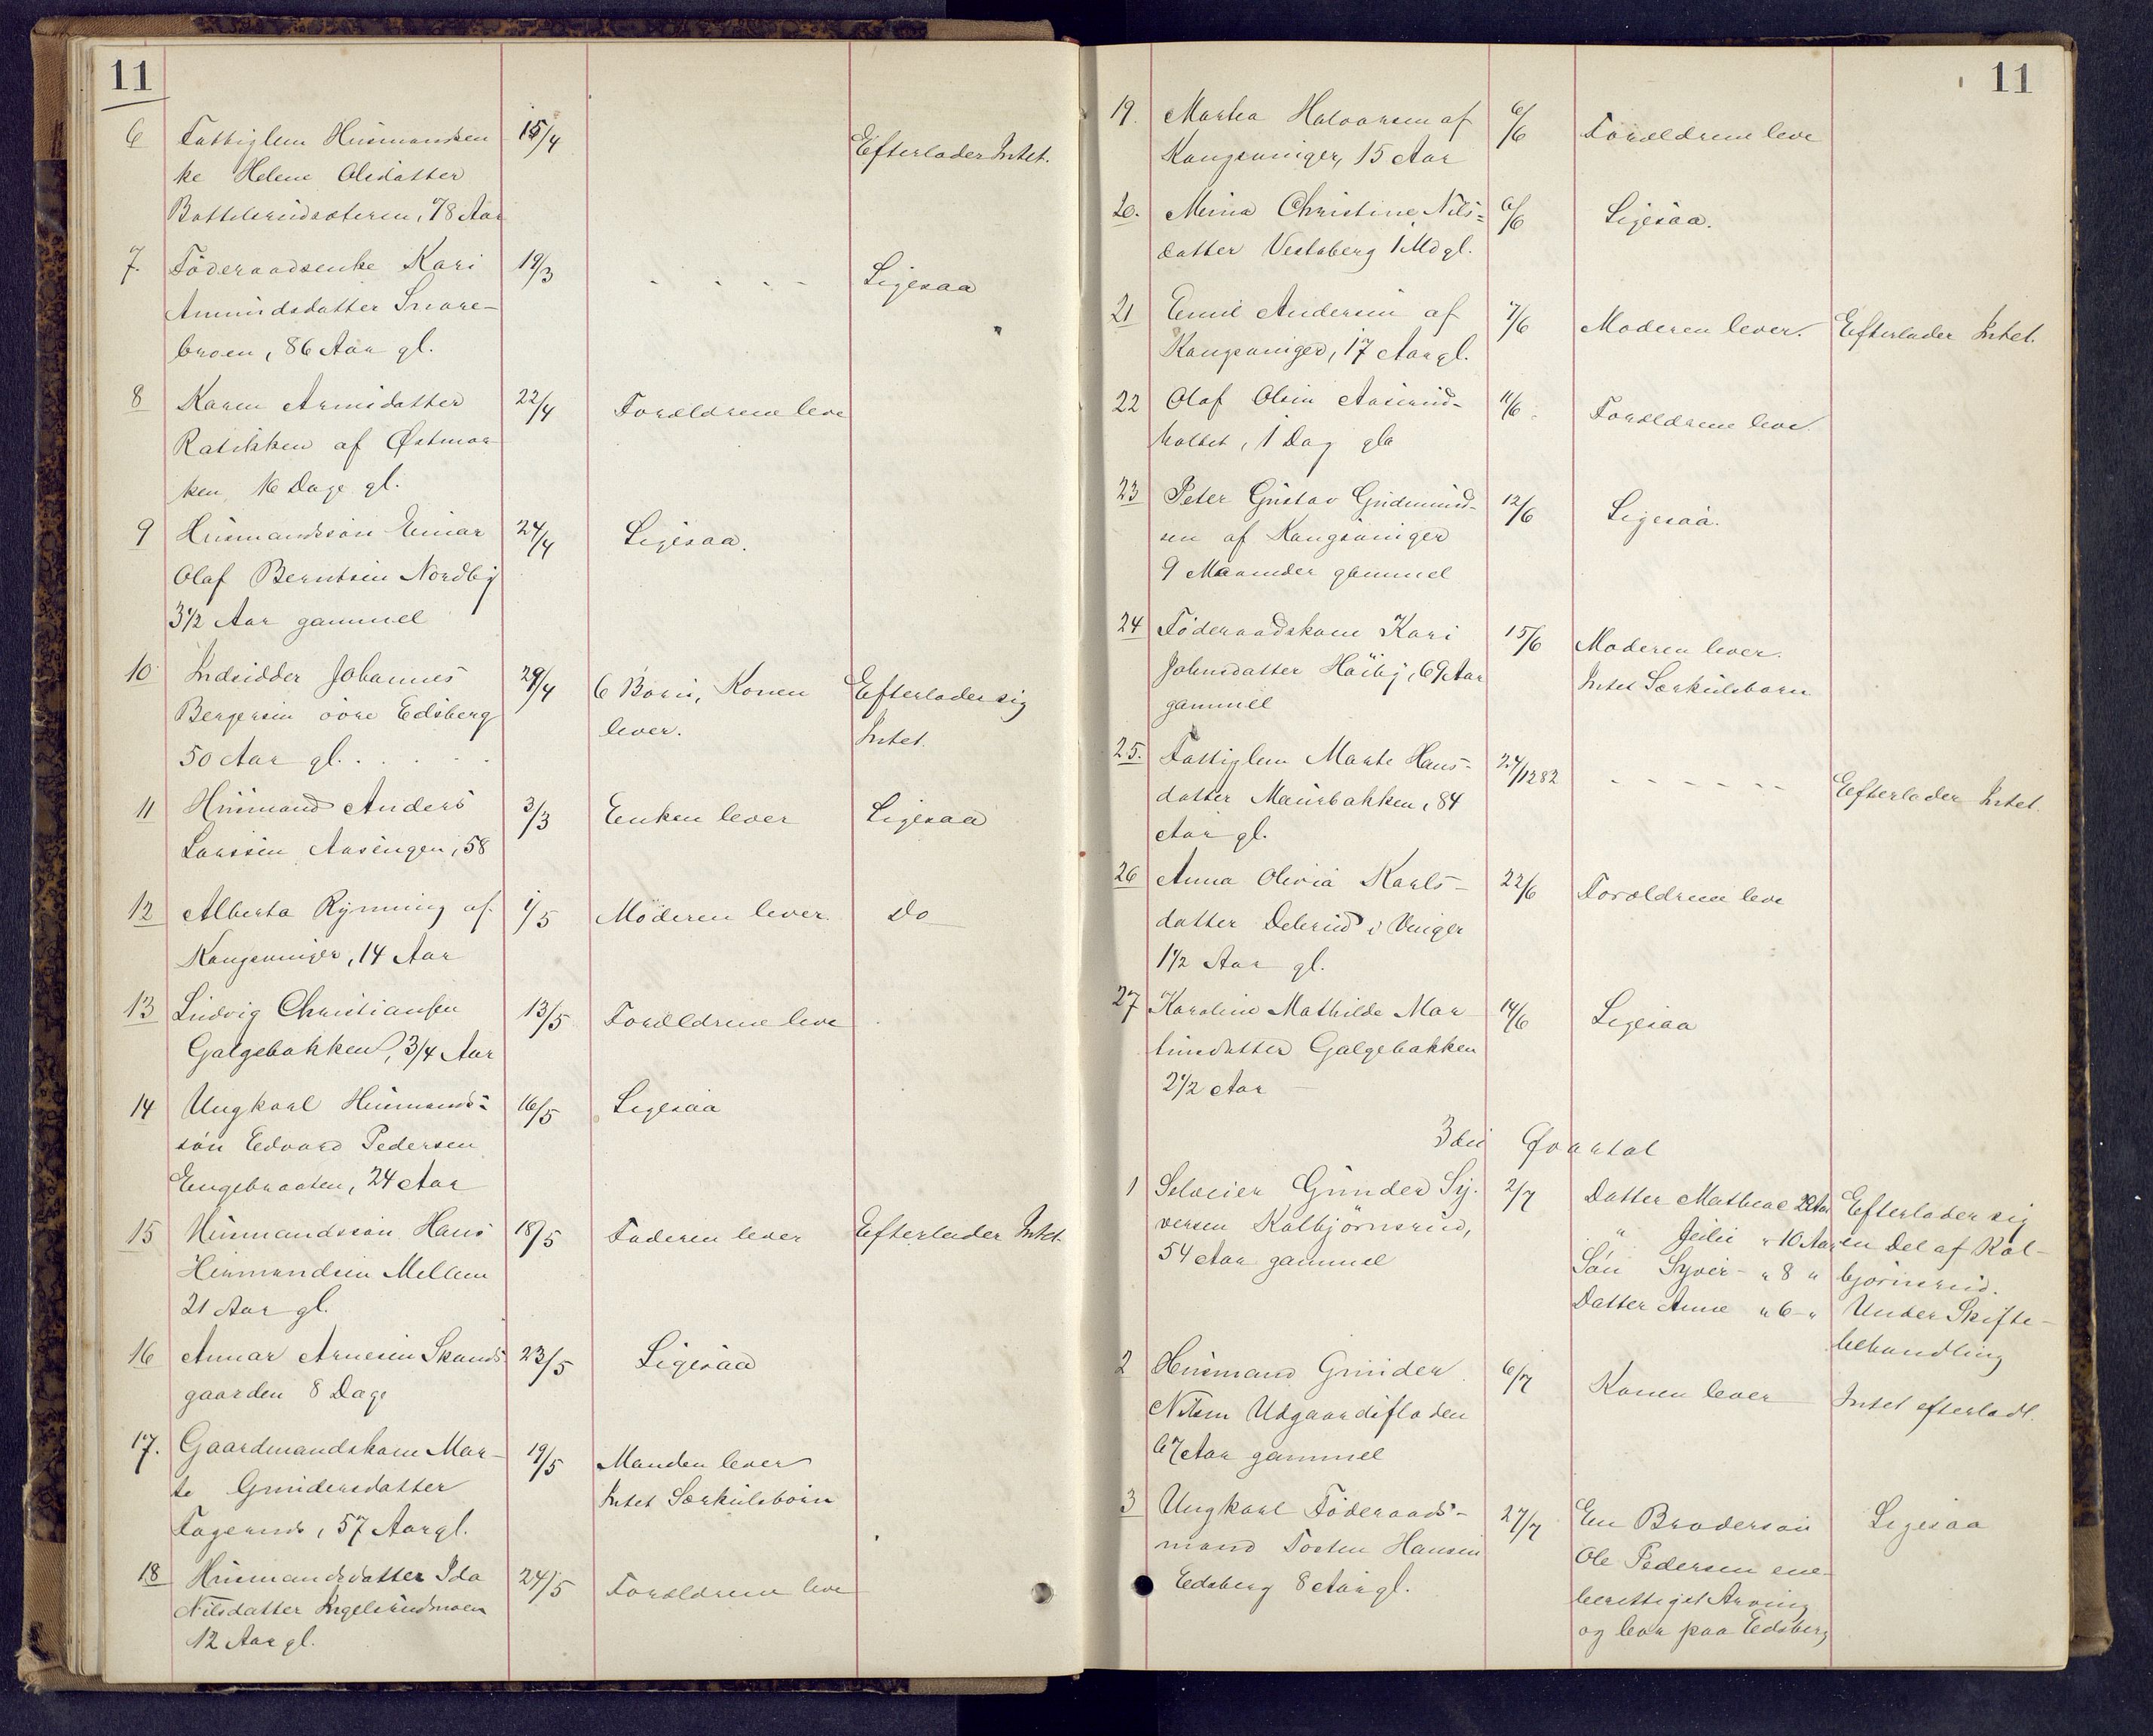 11
6 Fattiglem Husmandsen 15/4
ke Helene Olsdatter Efterlader Intet.
Bottilsrudsæteren, 78 Aar
7. Föderaadsenke Kari 19/3 - - - - Ligesaa
Amundsdatter Snare-
broen, 86 Aar gl.
8 Karen Arnisdatter 22/4 Forældrene leve
Ratikken af Østmar
ken, 16 Dage gl.
9 Husmandssön Einar 24/4 Ligesaa.
Olaf Berntsen Nordby
3 1/2 Aar gammel
10 Indsidder Johannes 29/4 6 Börn, Konen Efterlader sig
Bergersen övre Edsberg lever. Intet.
50 Aar gl. . . . . .
11 Husmand Anders 3/3 Enken lever Ligesaa
Larssen Aasengen, 58
12 Alberta Rynning af 1/5 Moderen lever. Do
Kongsvinger, 14 Aar
13 Ludvig Christiansen 13/5 Forældrene leve
Galgebakken, 3/4 Aar
14 Ungkarl Husmands- 16/5 Ligesaa
sön Edvard Pedersen
Engebraaten, 24 Aar
15 Husmandssön Hans 18/5 Faderen lever Efterlader Intet.
Hermundsen Mellem
21 Aar gl.
16 Annar Arnesen Skands 23/5 Ligesaa
gaarden 8 Dage
17. Gaardmandskone Mar- 19/5 Manden lever
te Gundersdatter Intet Særkulsbörn
Fagerud, 57 Aar gl.
18 Husmandsdatter Ida 24/5 Forældrene leve
Nilsdatter Ingelsrudmoen
12 Aar gl.
11
19. Martea Halvorsen af 6/6 Forældrene leve
Kongsvinger, 15 Aar
20. Meina Christine Nils= 6/6 Ligesaa.
datter Vestsberg 1 Md gl.
21 Emil Andersen af 7/6 Moderen lever. Efterlader Intet.
Kongsvinger, 17 Aar gl.
22 Olaf Olsen Aasrud- 11/6 Forældrene leve.
holtet, 1 Dag gl
23 Peter Gustav Gudmund- 12/6 Ligesaa.
sen af Kongsvinger
9 Maaneder gammel
24 Föderaadskone Kari 15/6 Moderen lever.
Johnsdatter Haiby, 69 Aar Intet Særkulsbarn
gammel
25. Fattiglem Marte Hans- 24/12 82 - - - - - - Efterlader Intet.
datter Maurbakken, 84
Aar gl.
26 Anna Olivia Karls- 22/6 Forældrene leve
datter Delerud i Vinger
1 1/2 Aar gl.
27 Karoline Mathilde Mar 14/6 Ligesaa
tinsdatter Galgebakken
2 1/2 Aar
3die Qvartal
1 Selveier Gunder Sy- 2/7 Datter Mathea 22 Aar Efterlader sig
versen Kolbjörnsrud, " " 10 Aar en Del af Kol-
54 Aar gammel Sön Syver - " 8 " björnsrud.
Datter Anne " 6 - " Under Skifte-
behandling
2 Husmand Gunder 6/7 Konen lever Intet efterladt.
Nilsen Udgaardsfloden
67 Aar gammel
3 Ungkarl Föderaads- 27/7 En Brodersön Ligesaa
mand Tosten Hansen Ole Pedersen ene-
Edsberg 8 Aar gl. berettiget Arving
og bor paa Edsberg